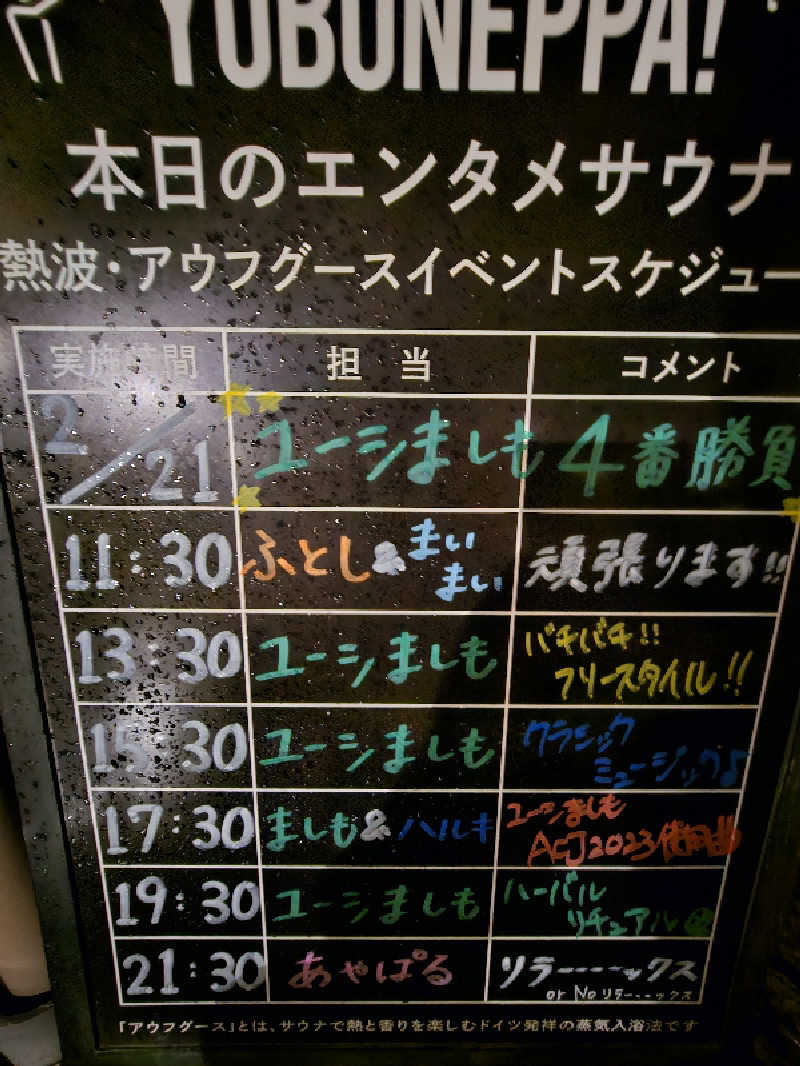 YUBUNEPPA!
本日のエンタメサウナ
熱波・アウフグースイベントスケジュー
実施時間 担当 コメント
2/21 ユーシましも 4番勝負
11:30 ふとし&まいまい 頑張ります!!
13:30 ユーシましも バチバチ!! フリースタイル!!
15:30 ユーシましも クラシックミュージック♪
17:30 ましも&ハルキ ユーシましも ACJ2023使用曲
19:30 ユーシましも ハーバルリチュアル
21:30 あやぱる リラー----ックス or No リラー---ックス
「アウフグース」とは、サウナで熱と香りを楽しむドイツ発祥の蒸気入浴法です